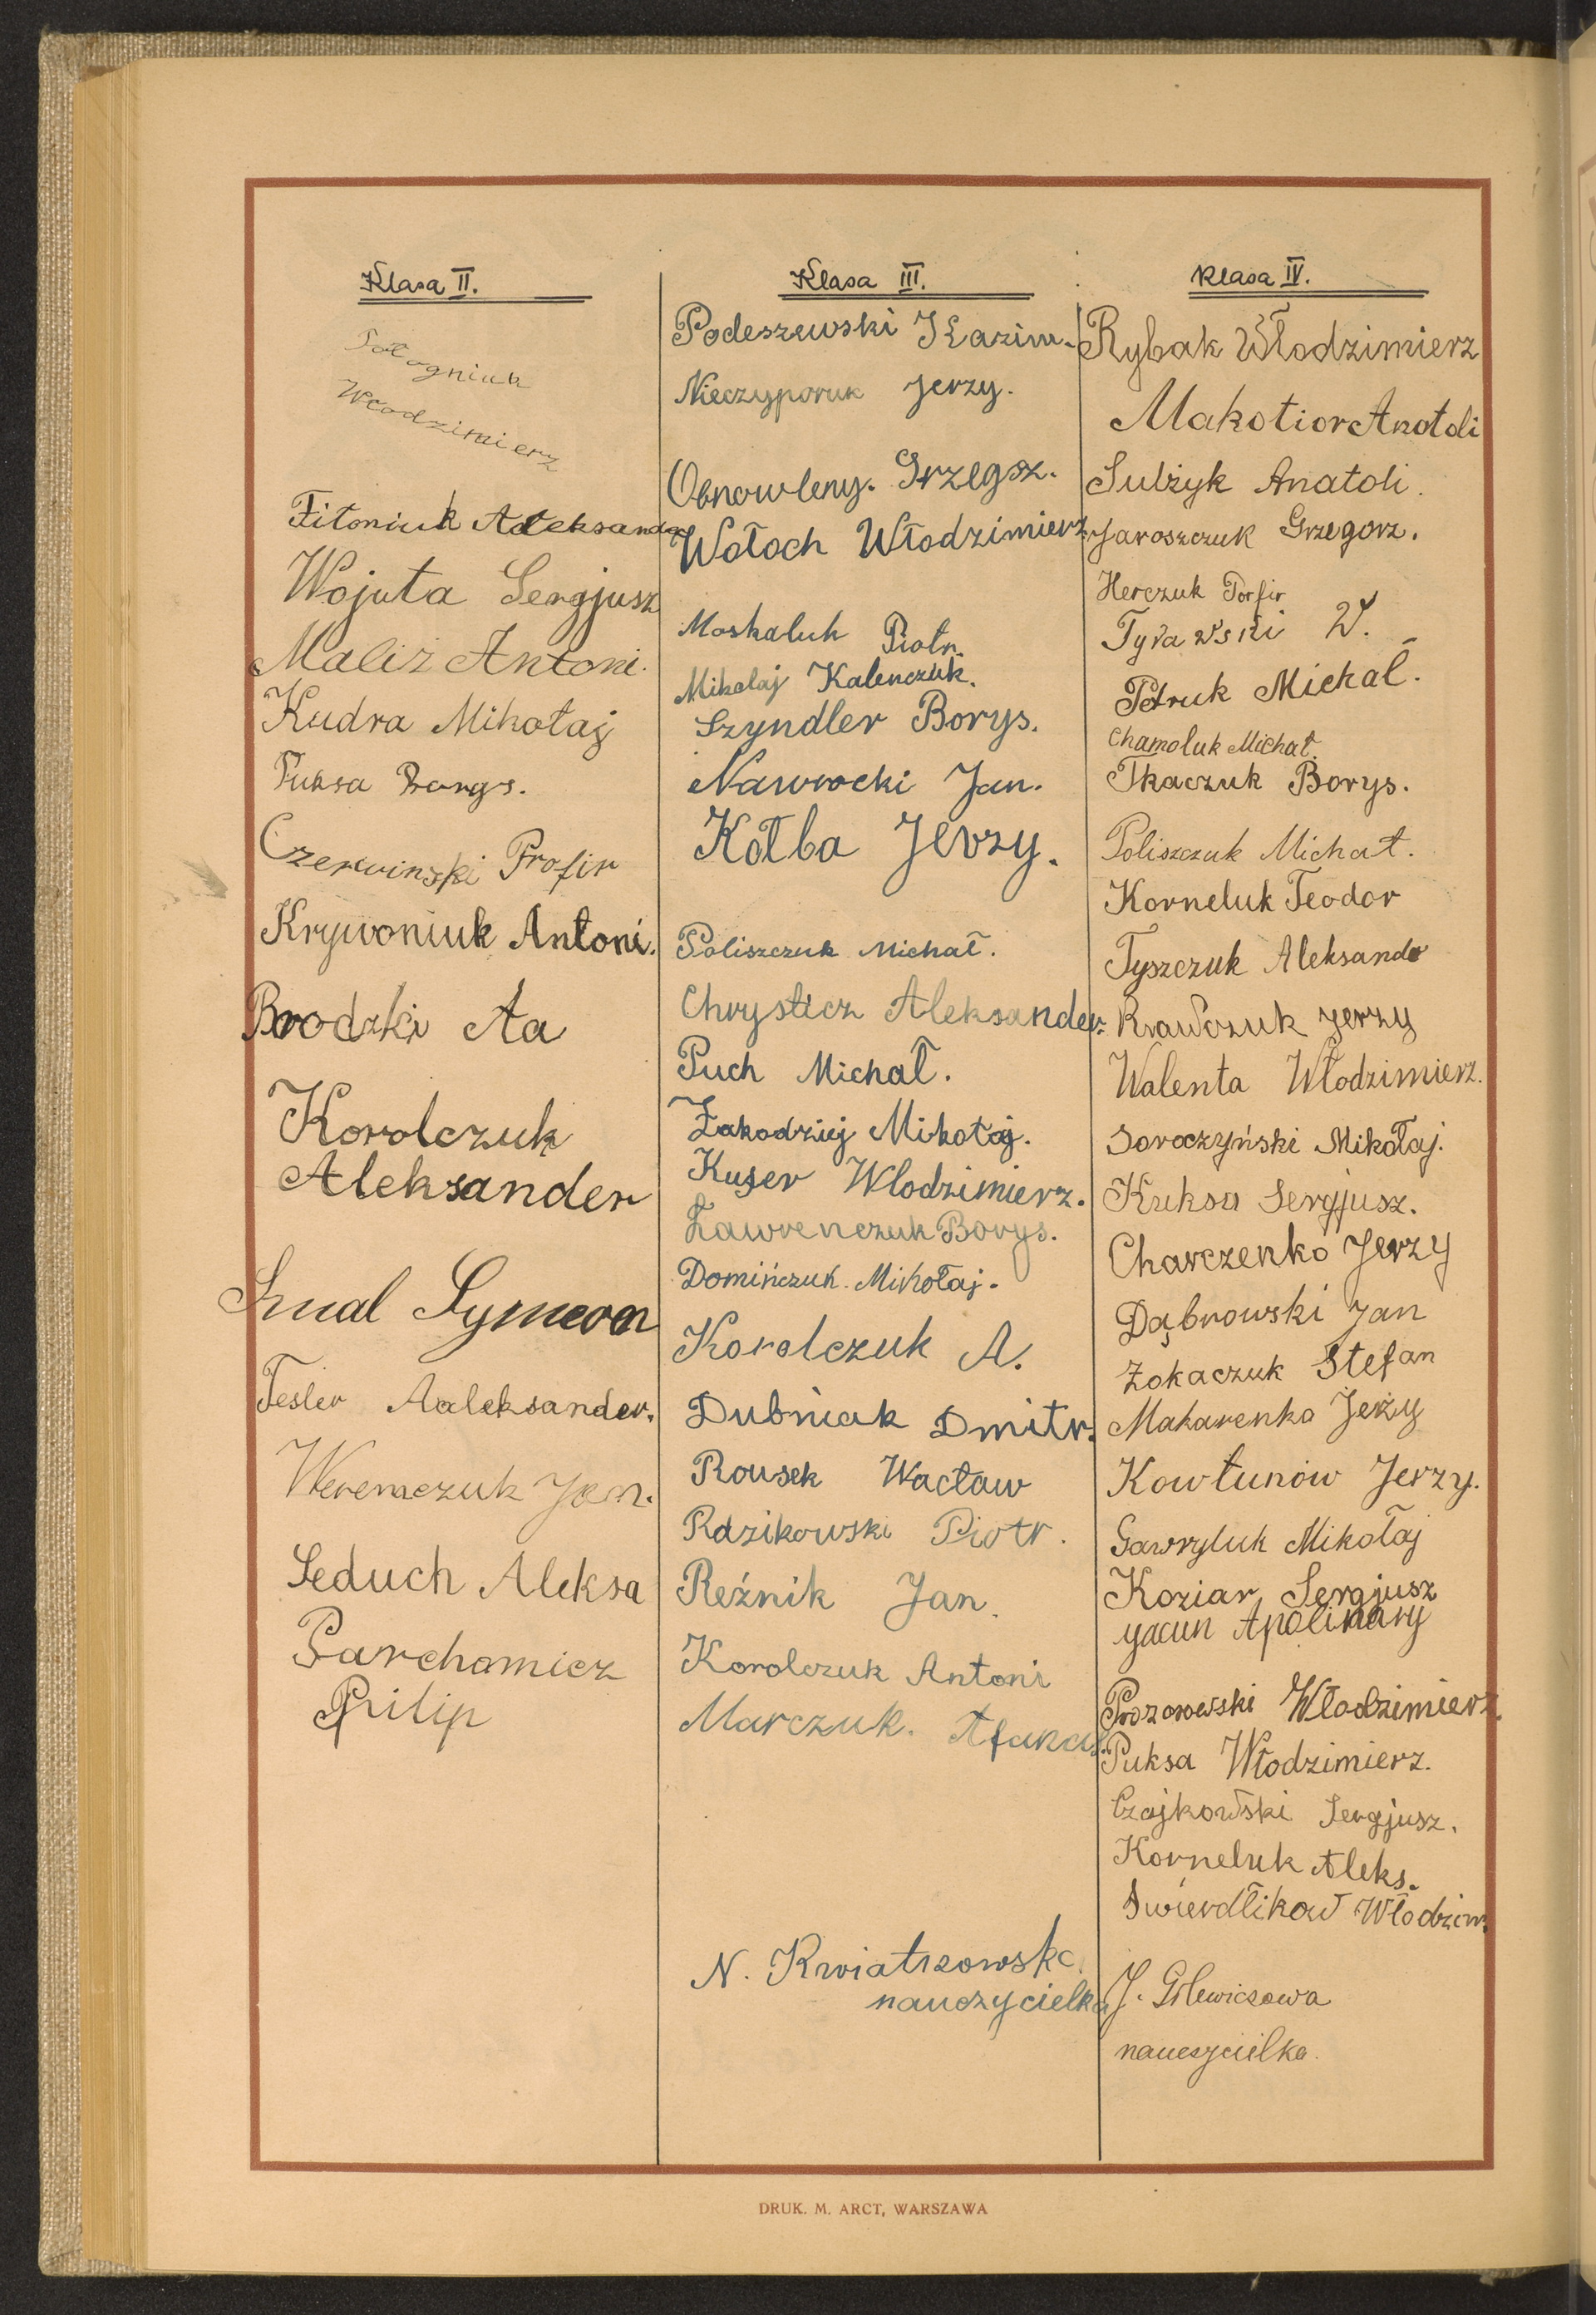 Klasa II.
Sołogniuk
Włodzimierz
Fitoniuk Aleksander
Wojuta Sergjusz
Maliż Antoni.
Kudra Mikołaj
Puksa Borys.
Czerwinski Profir
Krywoniuk Antoni.
Brodzki Aa
Korolczuk
Aleksander
Smal Symeon
Tesler Aaleksander.
Weremczuk Jan.
Seduch Aleksa
Parchomicz
Filip
Klasa III.
Podeszewski Kazim.
Nieczyporuk Jerzy.
Obnowleny. Grzegsz.
Wołoch Włodzimierz
Moskaluk Piotr.
Mikolaj Kalenczuk.
Szyndler Borys.
Nawrocki Jan.
Kołba Jerzy.
Poliszczuk Michał.
Chrysticz Aleksander.
Puch Michał.
Zakodziej Mikołaj.
Kuser Wlodzimierz.
Ławrenczuk Borys.
Domińczuk. Mikołaj.
Korolczuk A.
Dubniak Dmitr.
Rousek Wacław
Rdzikowski Piotr.
Reźnik Jan.
Korolczuk Antoni
Marczuk. Afanas.
N. Kwiatkowska.
nauczycielka
Klasa IV.
Rybak Włodzimierz
Makotior Anatoli
Sulżyk Anatoli.
Jaroszczuk Grzegorz.
Herczuk Porfir
Tyrawski W.
Petruk Michał.
Chamoluk Michał.
Tkaczuk Borys.
Poliszczuk Michał.
Korneluk Teodor
Tyszczuk Aleksandr
Krawczuk Jerzy
Walenta Włodzimierz.
Soroczyński Mikołaj.
Kuksa Sergjusz.
Charczenko Jerzy
Dąbrowski Jan
Żokaczuk Stefan
Makarenko Jerzy
Kowłunów Jerzy.
Gawryluk Mikołaj
Koziar Sergjusz
Yacun Apolinary
Prozorowski Włodzimierz.
Puksa Włodzimierz.
Czajkowski Sergjusz.
Korneluk Aleks.
Swierdlikow Włodzim.
J. Gilewiczowa
nauczycielka.
DRUK. M. ARCT, WARSZAWA